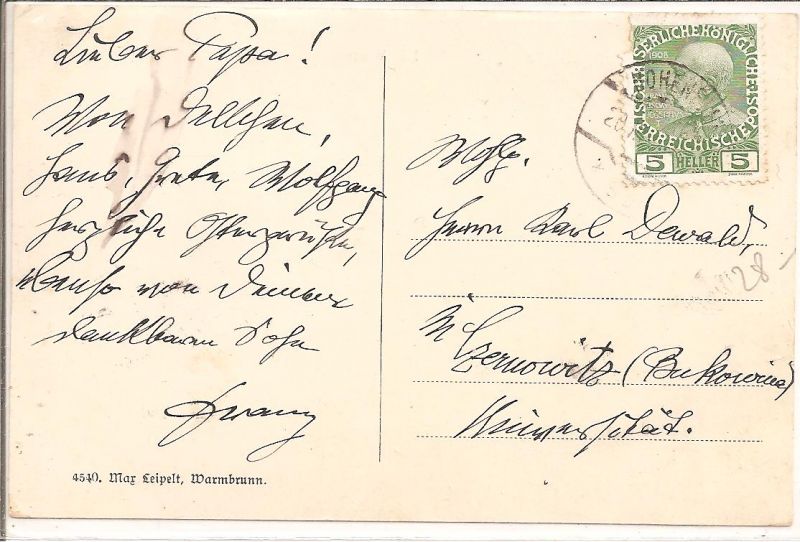 Lieber Papa!
Von Dellchen,
Hans, Grete, Wolfgang
herzliche Ostergrüße,
ebenso von Deinem
dankbaren Sohn
Franz
4540. Max Leipelt, Warmbrunn.
KAISERLICHE KÖNIGLICHE
1908
ÖSTERREICHISCHE
5 HELLER 5
HOHENE
Wohlg.
Herrn Karl Dewald,
28
in Czernowitz (Bukowina)
Universität.